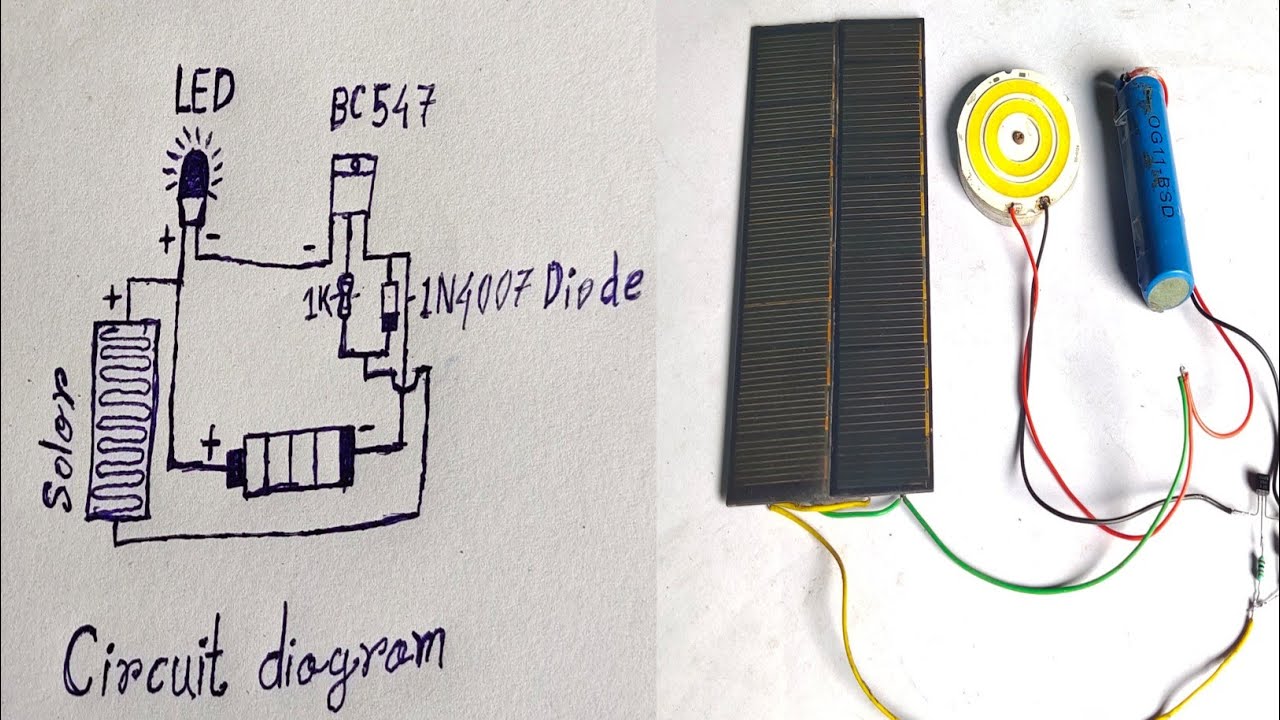 LED
BC547
+
-
-
+
1K
1N4007 Diode
Solor
+
-
Circuit diogrom